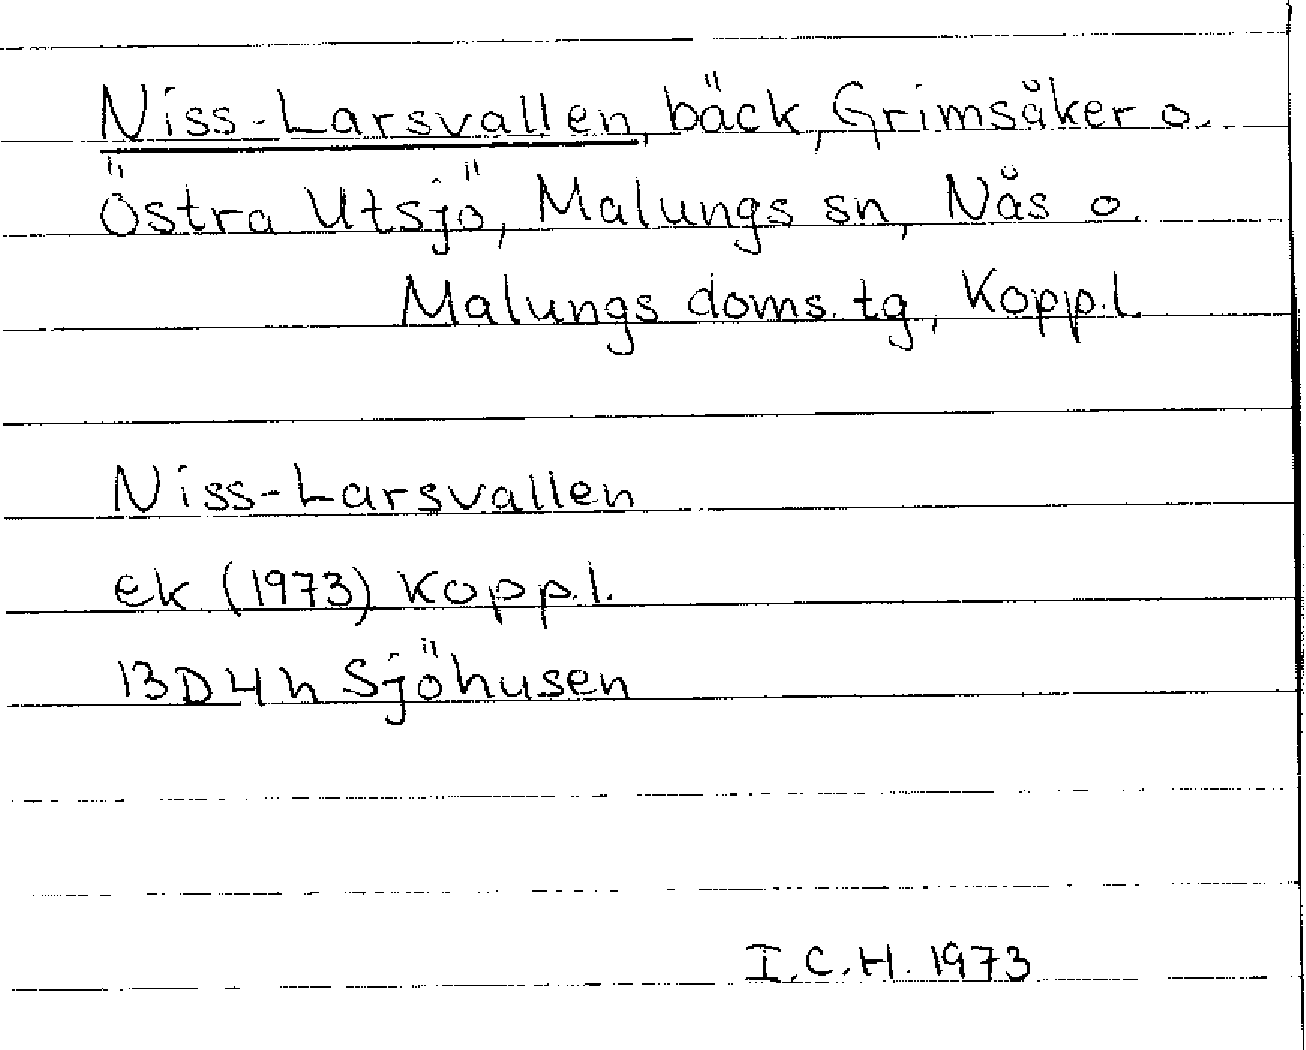 Niss-Larsvallen, bäck, Grimsåker o.
Östra Utsjö, Malungs sn, Nås o.
Malungs doms. tg, Kopp.l.
Niss-Larsvallen
ek (1973) Kopp.l.
13D4h Sjöhusen
I.C.H. 1973